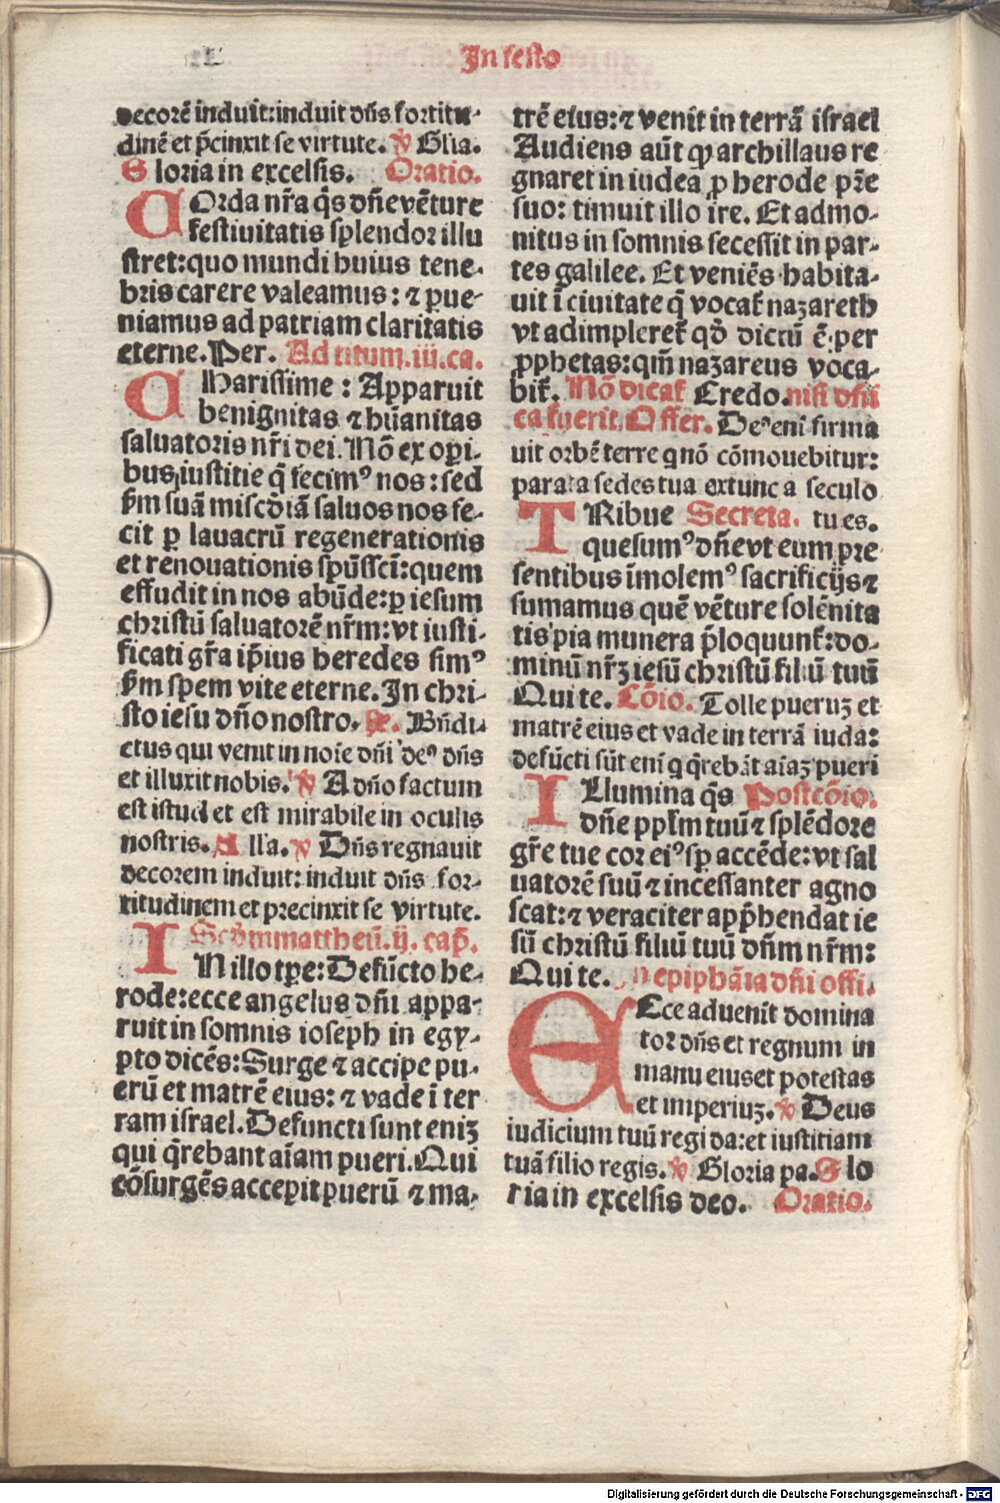 In festo
decorē induit: induit dñs fortitu-
dinē et p̄cinxit se virtute. ℣ Glīa.
Gloria in excelsis. Oratio.
COrda nr̄a q̄s dñe vēture
festiuitatis splendor illu
stret: quo mundi huius tene-
bris carere valeamus: ⁊ ꝑue-
niamus ad patriam claritatis
eterne. Per. Ad titum. iij. ca.
CHarissime: Apparuit
benignitas ⁊ hūanitas
saluatoris nr̄i dei. Nō ex oꝑi-
bus iustitie q̄ fecimꝰ nos: sed
ẜm suā miscd̄iā saluos nos fe-
cit ꝑ lauacrū regenerationis
et renouationis spūssci̅: quem
effudit in nos abūde: ꝑ iesum
christū saluatorē nr̄m: vt iusti-
ficati gr̄a ip̄ius heredes simꝰ
ẜm spem vite eterne. In chri-
sto iesu dño nostro. ℟. Bñdi-
ctus qui venit in noīe dñi deꝰ dñs
et illuxit nobis. ℣ A dño factum
est istud et est mirabile in oculis
nostris. Alla. ℣ Dñs regnauit
decorem induit: induit dñs for-
titudinem et precinxit se virtute.
Scd̄m mattheū. ij. cap̄.
IN illo tp̄e: Defūcto he-
rode: ecce angelus dñi appa-
ruit in somnis ioseph in egy-
pto dicēs: Surge ⁊ accipe pu-
erū et matrē eius: ⁊ vade ī ter
ram israel. Defuncti sunt eniꝫ
qui q̄rebant aīam pueri. Qui
cōsurgēs accepit puerū ⁊ ma-
trē eius: ⁊ venit in terrā israel
Audiens aūt ꝙ archillaus re
gnaret in iudea ꝓ herode pr̄e
suo: timuit illo ire. Et admo-
nitus in somnis secessit in par-
tes galilee. Et veniēs habita-
uit ī ciuitate q̄ vocat̄ nazareth
vt adimpleret̄ qd̄ dictū ē. per
ꝓphetas: qm̄ nazareus voca-
bit̄. Nō dicat̄ Credo. nisi dñi
ca fuerit. Offer. Deꝰ eni firma
uit orbē terre q nō cōmouebitur:
parata sedes tua extunc a seculo
TRibue Secreta. tu es.
quesumꝰ dñe vt eum pre
sentibus īmolemꝰ sacrificijs ⁊
sumamus quē vēture solēnita
tis pia munera p̄loquunt̄: do-
minū nr̄ꝫ iesū christū filiū tuū
Qui te. Cōio. Tolle pueruꝫ et
matrē eius et vade in terrā iuda:
defūcti sūt eni q q̄rebāt aīaꝫ pueri
ILlumina q̄s Postcōio.
dñe ppl̄m tuū ⁊ splēdore
gr̄e tue cor eiꝰ sꝑ accēde: vt sal
uatorē suū ⁊ incessanter agno
scat: ⁊ veraciter app̄hendat ie
sū christū filiū tuū dñm nr̄m:
Qui te. In epiphāia dñi offi.
ECce aduenit domina
tor dñs et regnum in
manu eius et potestas
et imperiuꝫ. ℣ Deus
iudicium tuū regi da: et iustitiam
tuā filio regis. ℣ Gloria pa. Glo
ria in excelsis deo. Oratio.
Digitalisierung gefördert durch die Deutsche Forschungsgemeinschaft - DFG